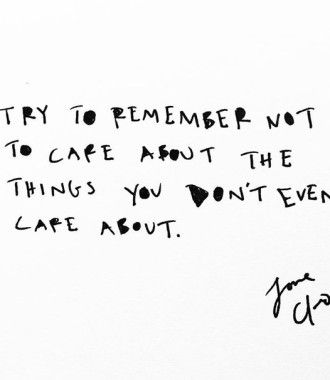 TRY TO REMEMBER NOT
TO CARE ABOUT THE
THINGS YOU DON'T EVEN
CARE ABOUT.